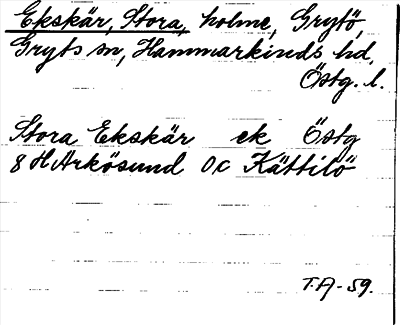 Ekskär, Stora, holme, Grytö,
Gryts sn, Hammarkinds hd,
Östg. l.
Stora Ekskär ek Östg
8 H Arkösund O.C Kättilö
T.A-59.